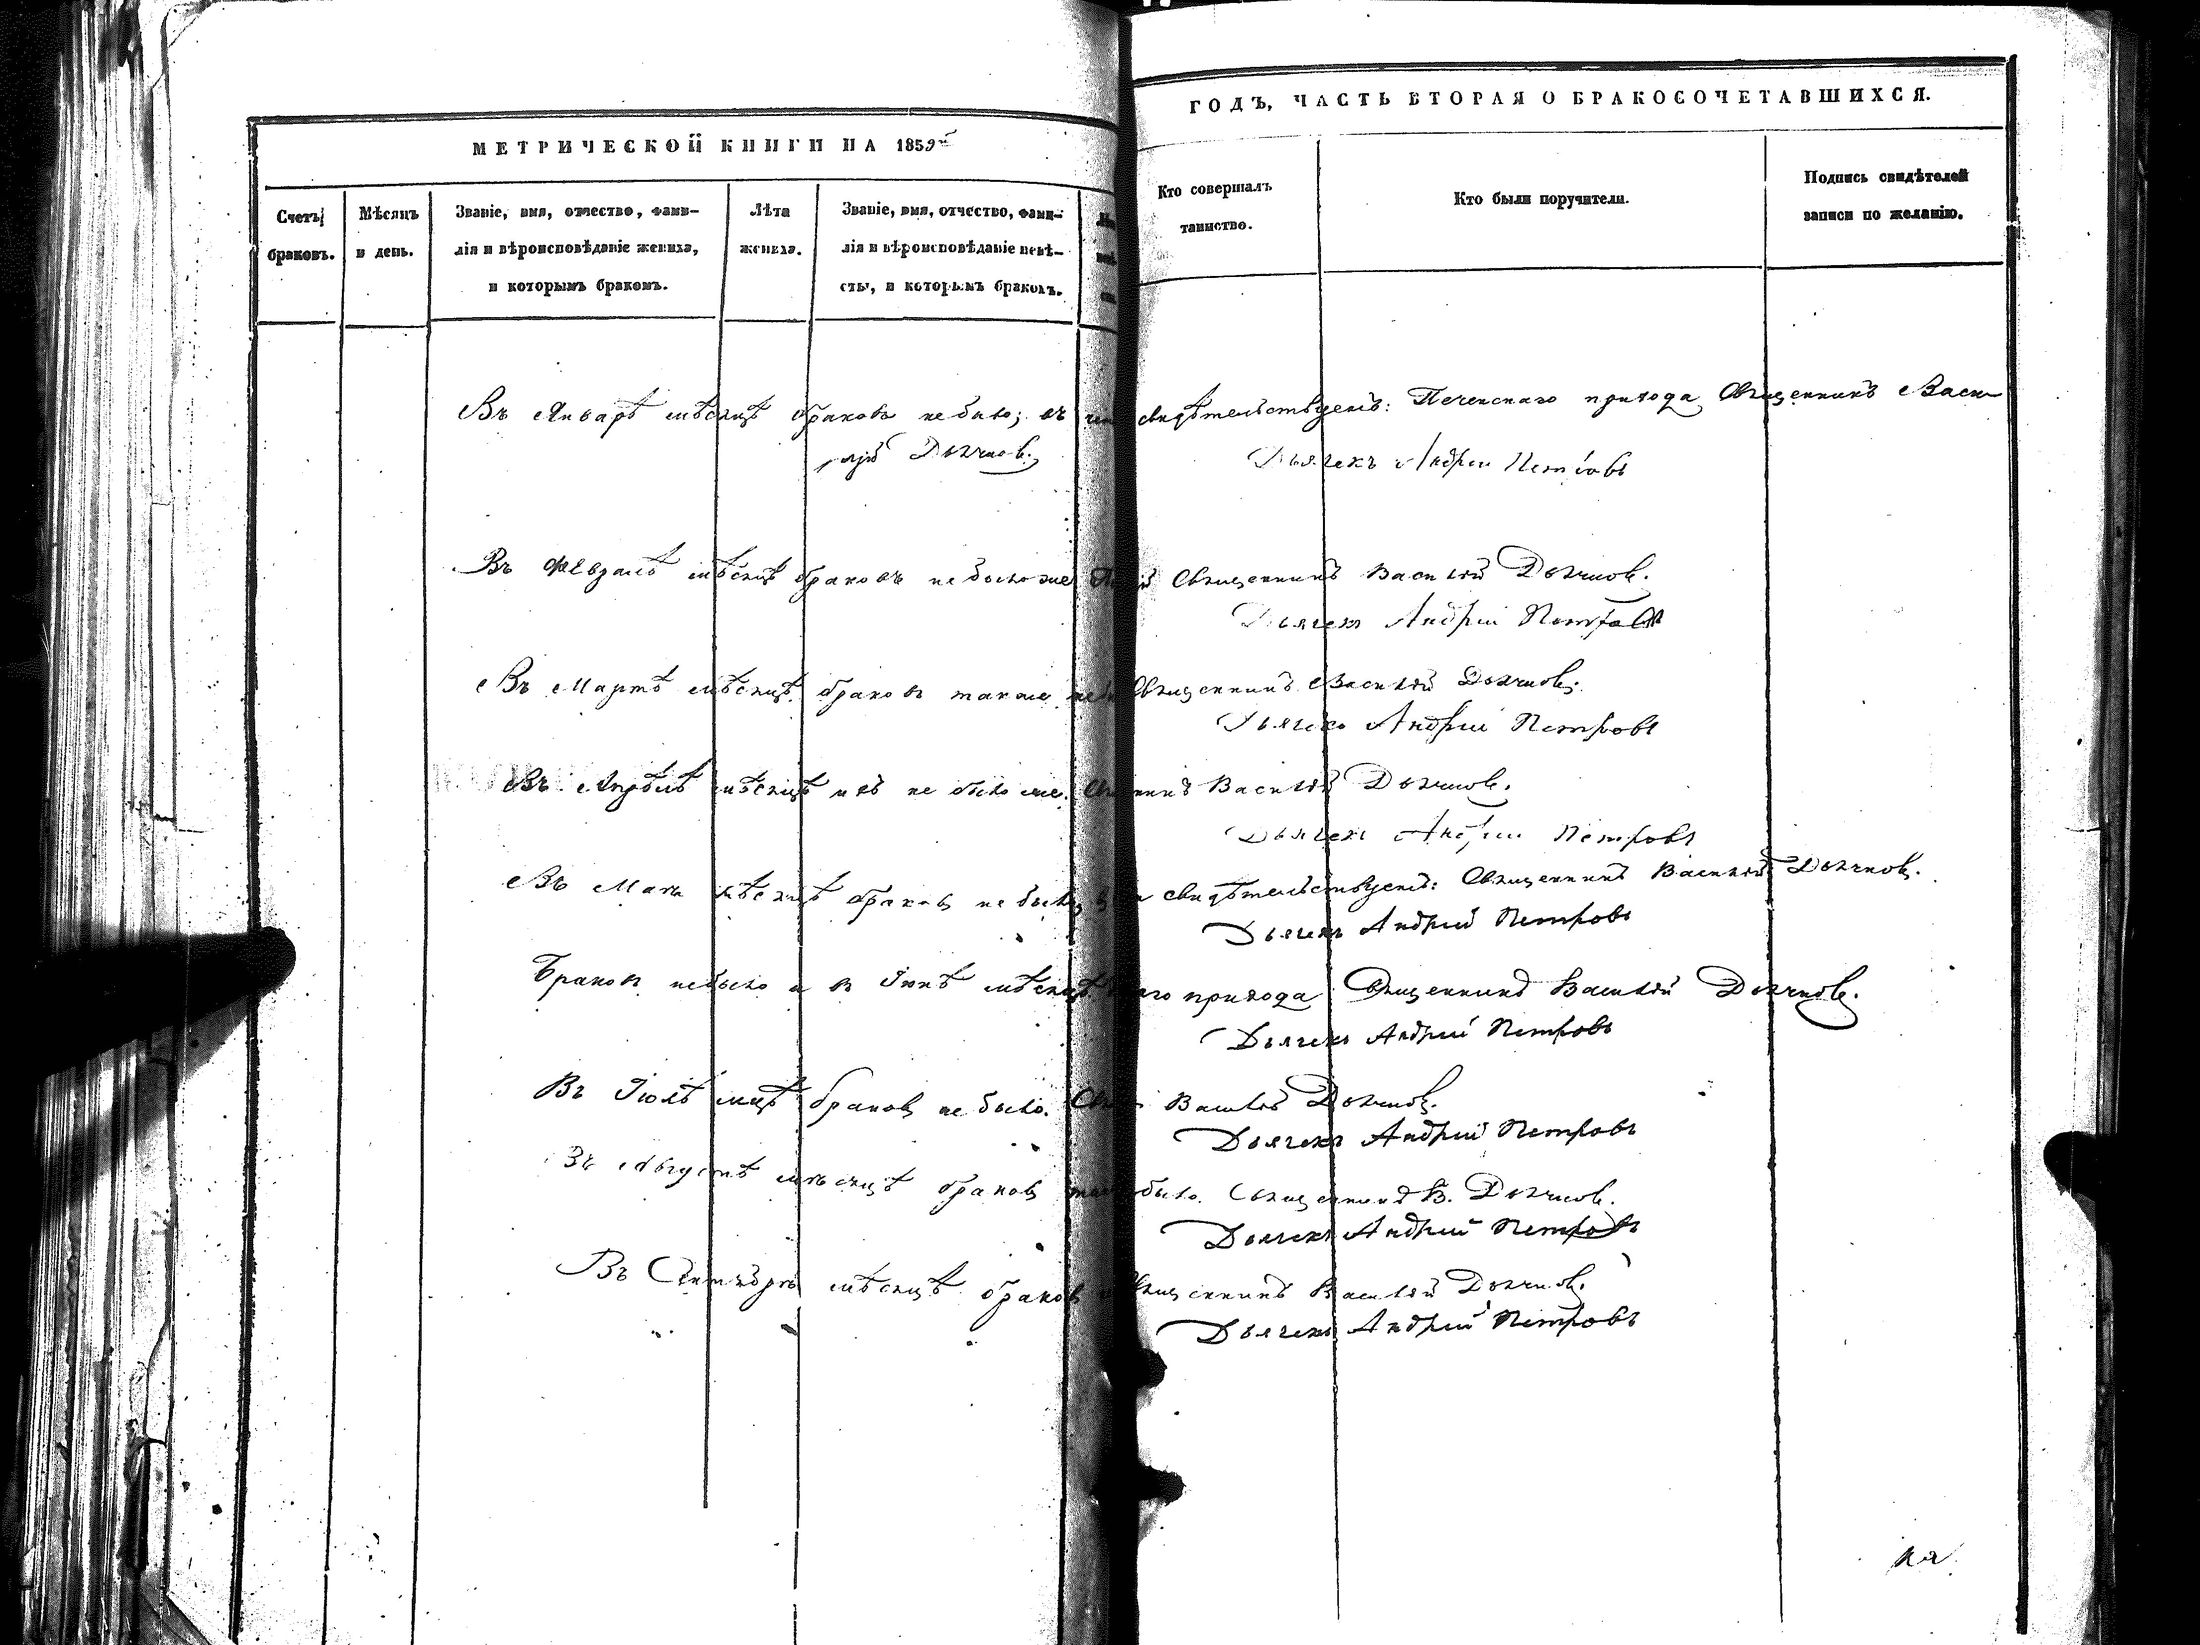 МЕТРИЧЕСКОЙ КНИГИ НА 1859й
ГОДЪ, ЧАСТЬ ВТОРАЯ О БРАКОСОЧЕТАВШИХСЯ.
Счетъ браковъ.
Мѣсяцъ и день.
Званіе, имя, отчество, фами-
лія и вѣроисповѣданіе жениха,
и которымъ бракомъ.
Лѣта жениха.
Званіе, имя, отчество, фами-
лія и вѣроисповѣданіе невѣ-
сты, и которымъ бракомъ.
Кто совершалъ
таинство.
Кто были поручители.
Подпись свидѣтелей
записи по желанію.
Въ Январѣ мѣсяцѣ браковъ не было; въ чем свидѣтельствуемъ: прихода Священникъ Васи-
лій
Дьячекъ Андрей Петровъ
Въ Февралѣ мѣсяцѣ браковъ не было же Священникъ Василій
Дьячекъ Андрей Петровъ
Въ Мартѣ мѣсяцѣ браковъ также Священникъ Василій
Дьячекъ Андрей Петровъ
Въ Апрѣлѣ мѣсяцѣ ихъ не было же. Василій
Дьячекъ Андрей Петровъ
Въ Маѣ мѣсяцѣ браковъ не было, свидѣтельствуемъ: Священникъ Василій
Дьячекъ Андрей Петровъ
Браковъ не было и въ Іюнѣ мѣсяцѣ прихода Священникъ Василій
Дьячекъ Андрей Петровъ
Въ Іюлѣ мцѣ браковъ не было. Василій
Дьячекъ Андрей Петровъ
Въ Августѣ мѣсяцѣ браковъ было. Священникъ В.
Дьячекъ Андрей Петровъ
Въ Сентябрѣ мѣсяцѣ браковъ Священникъ Василій
Дьячекъ Андрей Петровъ